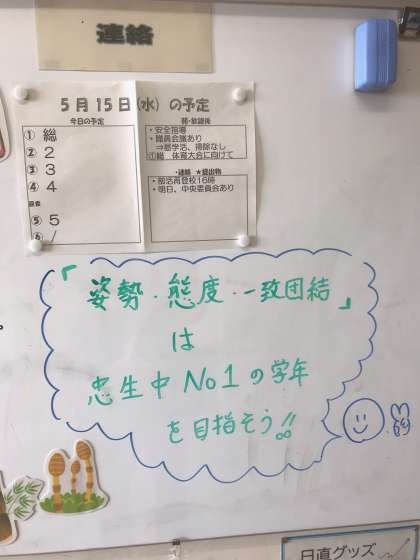 連絡
5月15日(水)の予定
今日の予定
① 総
② 2
③ 3
④ 4
昼食
⑤ 5
⑥ /
朝・放課後
・安全指導
・職員会議あり
⇒昼学活、掃除なし
①総 体育大会に向けて
・連絡 ★提出物
・部活再登校16時
・明日、中央委員会あり
「姿勢・態度・一致団結」
は
忠生中No1の学年
を目指そう!!
日直グッズ